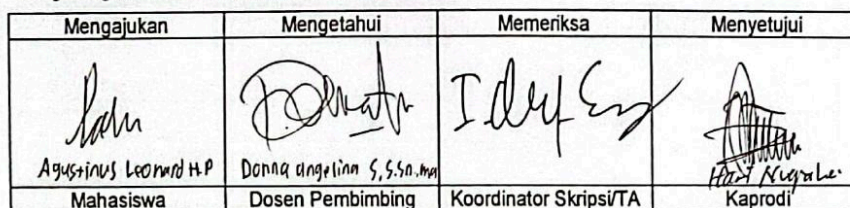 Mengajukan Mengetahui Memeriksa Menyetujui
Agustinus Leonard H.P Donna angelina S, S.Sn., ma
Mahasiswa Dosen Pembimbing Koordinator Skripsi/TA Kaprodi